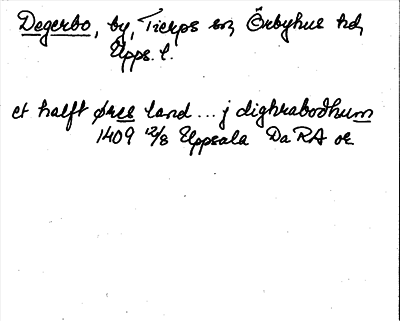 Degerbo, by, Tierps sn, Örbyhus hd,
Upps. l.
et halft øres land ... j dighrabodhum
1409 12/8 Uppsala DaRA or.